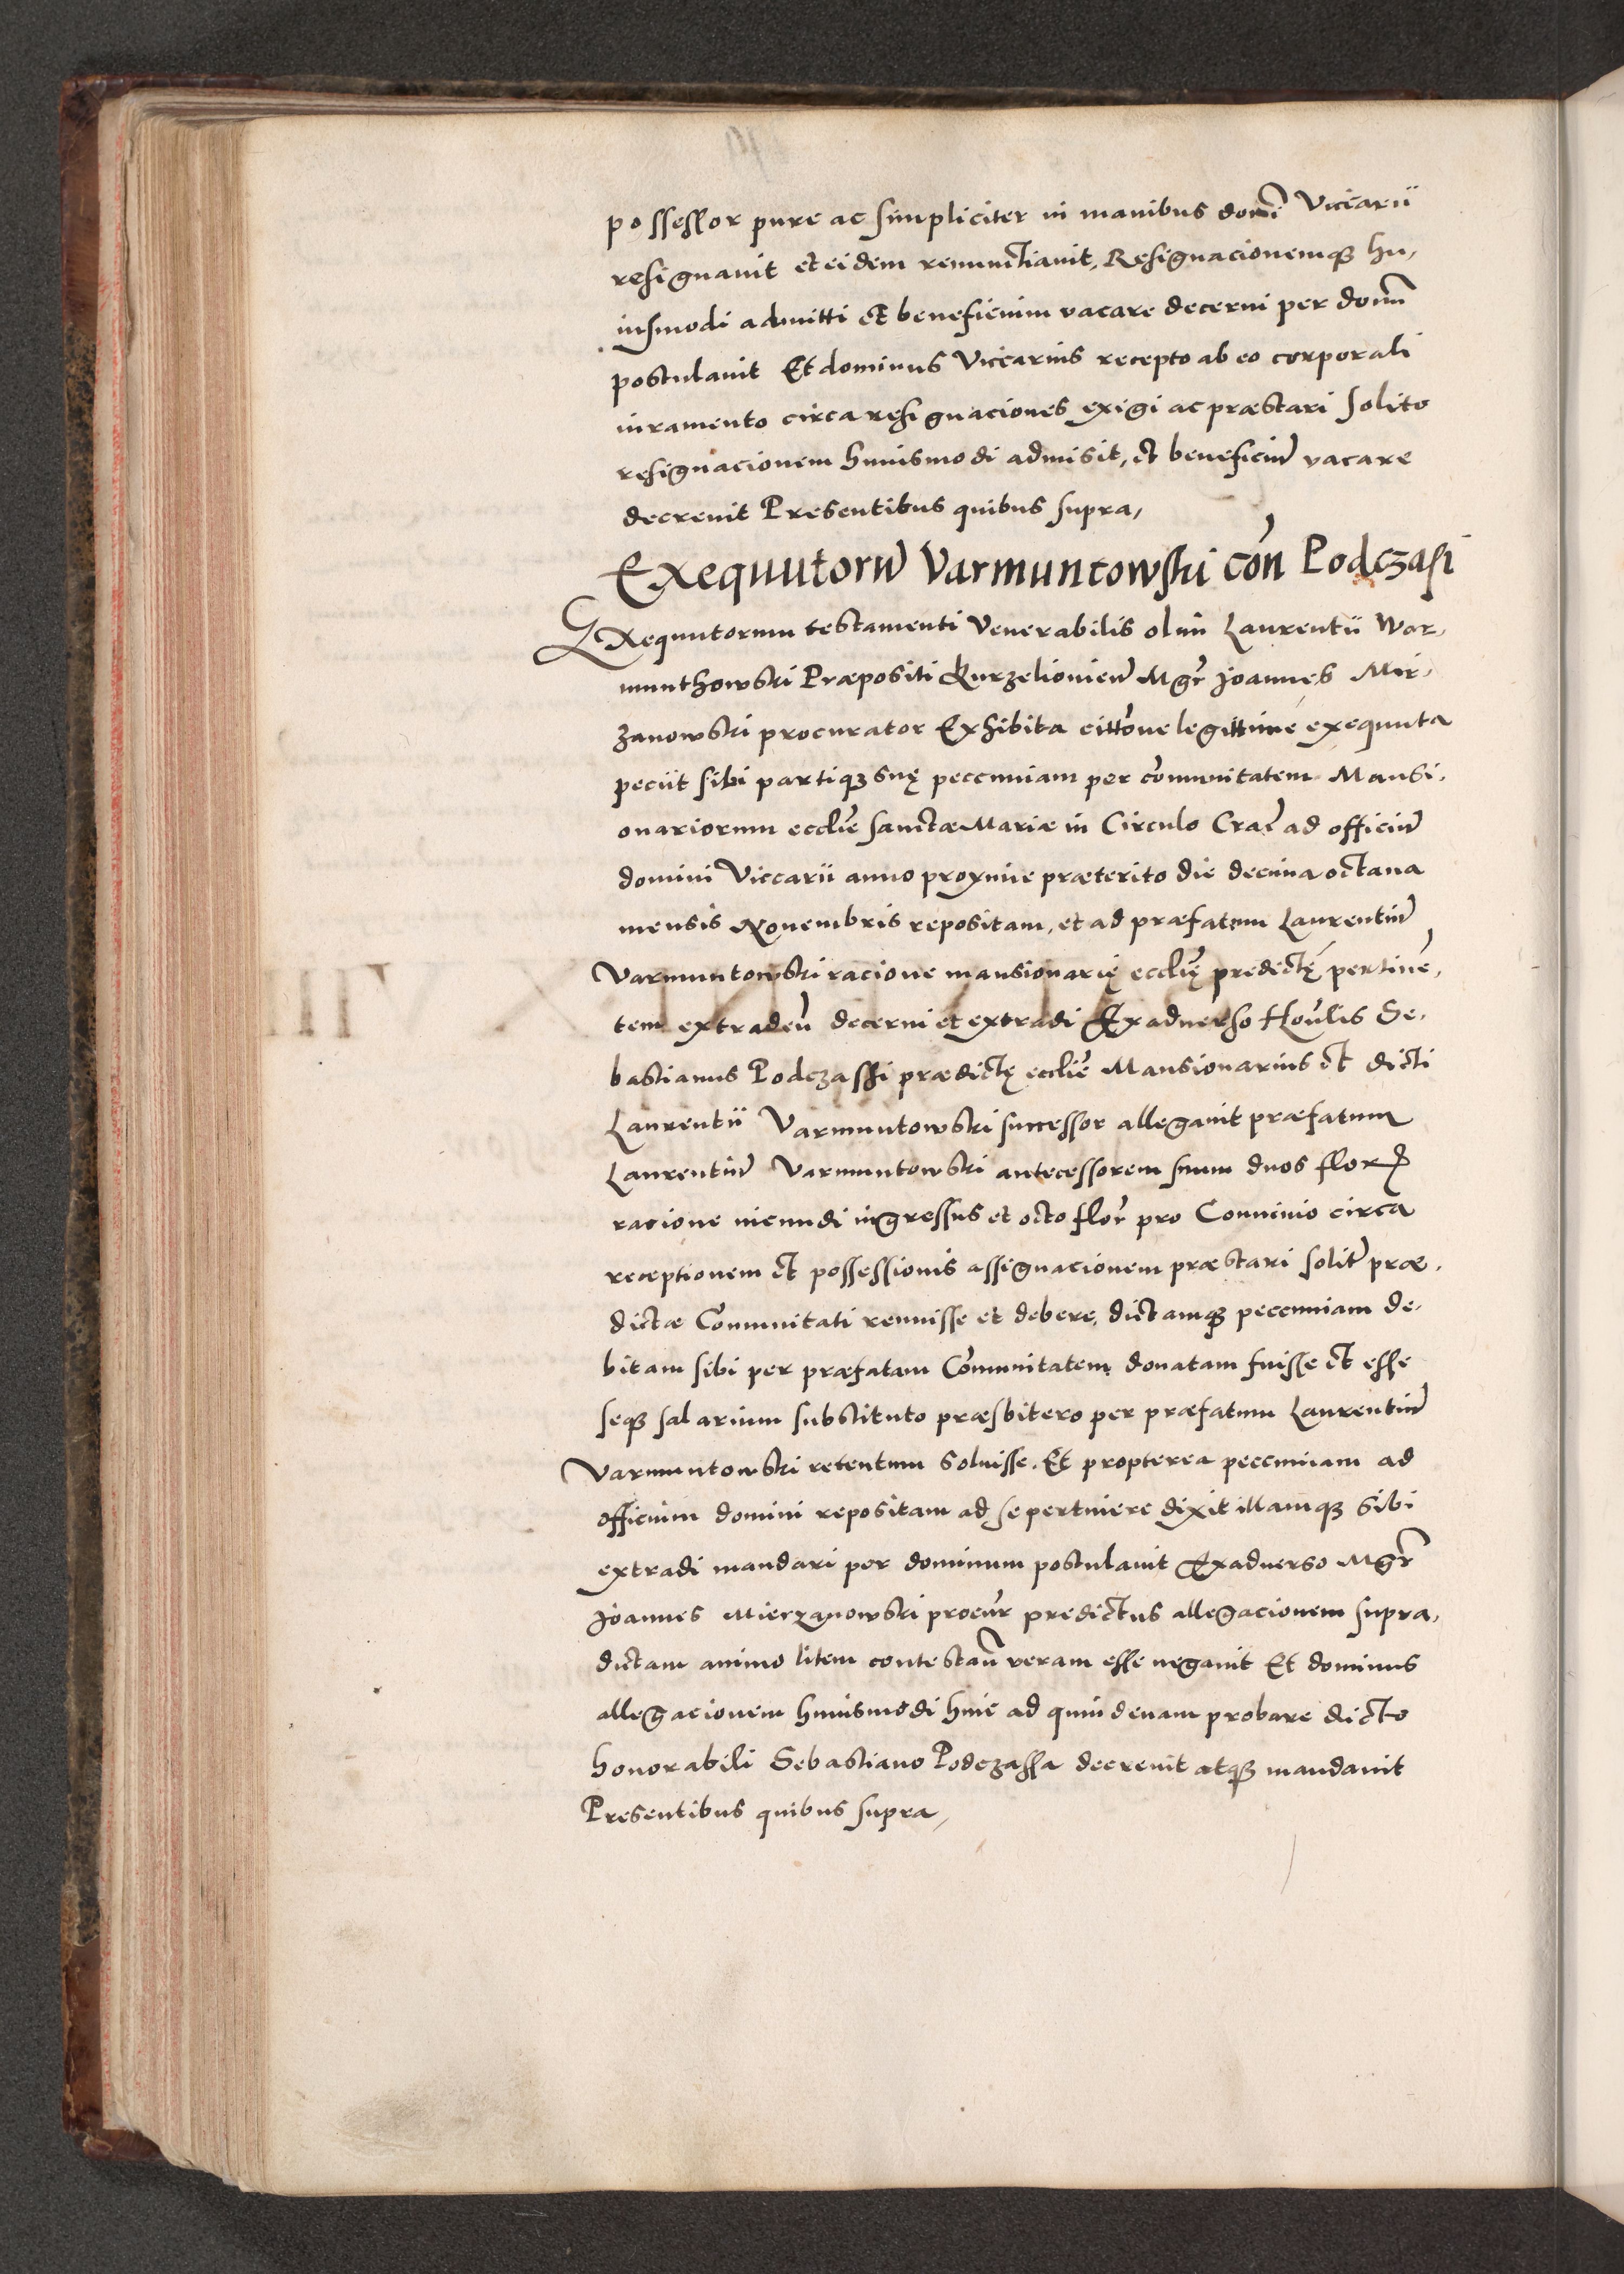 possessor pure ac simpliciter in manibus domi Viccarii
resignauit et eidem renunctiauit, Resignacionemq3 hu,
iusmodi admitti et beneficium vacare decerni per domn
postulauit Et dominus Viccarius recepto ab eo corporali
iuramento circa resignaciones exigi ac præstari solito
resignacionem huiusmodi admisit, et beneficiũ vacare
decreuit Presentibus quibus supra,
Exequutorũ Varmuntowski cõn Podczasi
Exequutorum testamenti Venerabilis olim Laurentii War,
munthowski Præpositi Kurzeliovieñ Mgr̃ Joannes Mir,
zanowski procurator Exhibita cittõne legittime exequuta
peciit sibi partiq3 suę peccuniam per cõmunitatem Mansi,
onariorum ecclĩe sanctæ Mariæ in Circulo Crac̃ ad officiũ
domini Viccarii anno proxime præterito die decima octaua
mensis Nouembris repositam, et ad præfatum Laurentiũ
Varmuntowski racione mansionarię ecclĩę predictę pertinẽ,
tem extradeñ decerni et extradi Exaduerso Hoñlis Se,
bastianus Podczasski prædictę ecclĩe Mansionarius et dicti
Laurentii Varmuntowski successor allegauit præfatum
Laurentiũ Varmuntowski antecessorem suum duos flor
racione iucundi ingressus et octo flor̃ pro Conuiuio circa
receptionem et possessionis assignacionem præstari solit̃ præ,
dictæ Cõmunitati renuisse et debere, dictamq3 peccuniam de,
bitam sibi per præfatam Cõmunitatem donatam fuisse et esse
seq3 salarium substituto præsbitero per præfatum Laurentiũ
Varmuntowski retentum soluisse. Et propterea peccuniam ad
officium domini repositam ad se pertinere dixit illamq3 sibi
extradi mandari per dominum postulauit Exaduerso Mgr̃
Joannes Mierzanowski procur̃ predictus allegacionem supra,
dictam animo litem contestañ veram esse negauit Et dominus
allegacionem huiusmodi hinc ad quindenam probare dicto
honorabili Sebastiano Podczassa decreuit atq3 mandauit
Presentibus quibus supra,